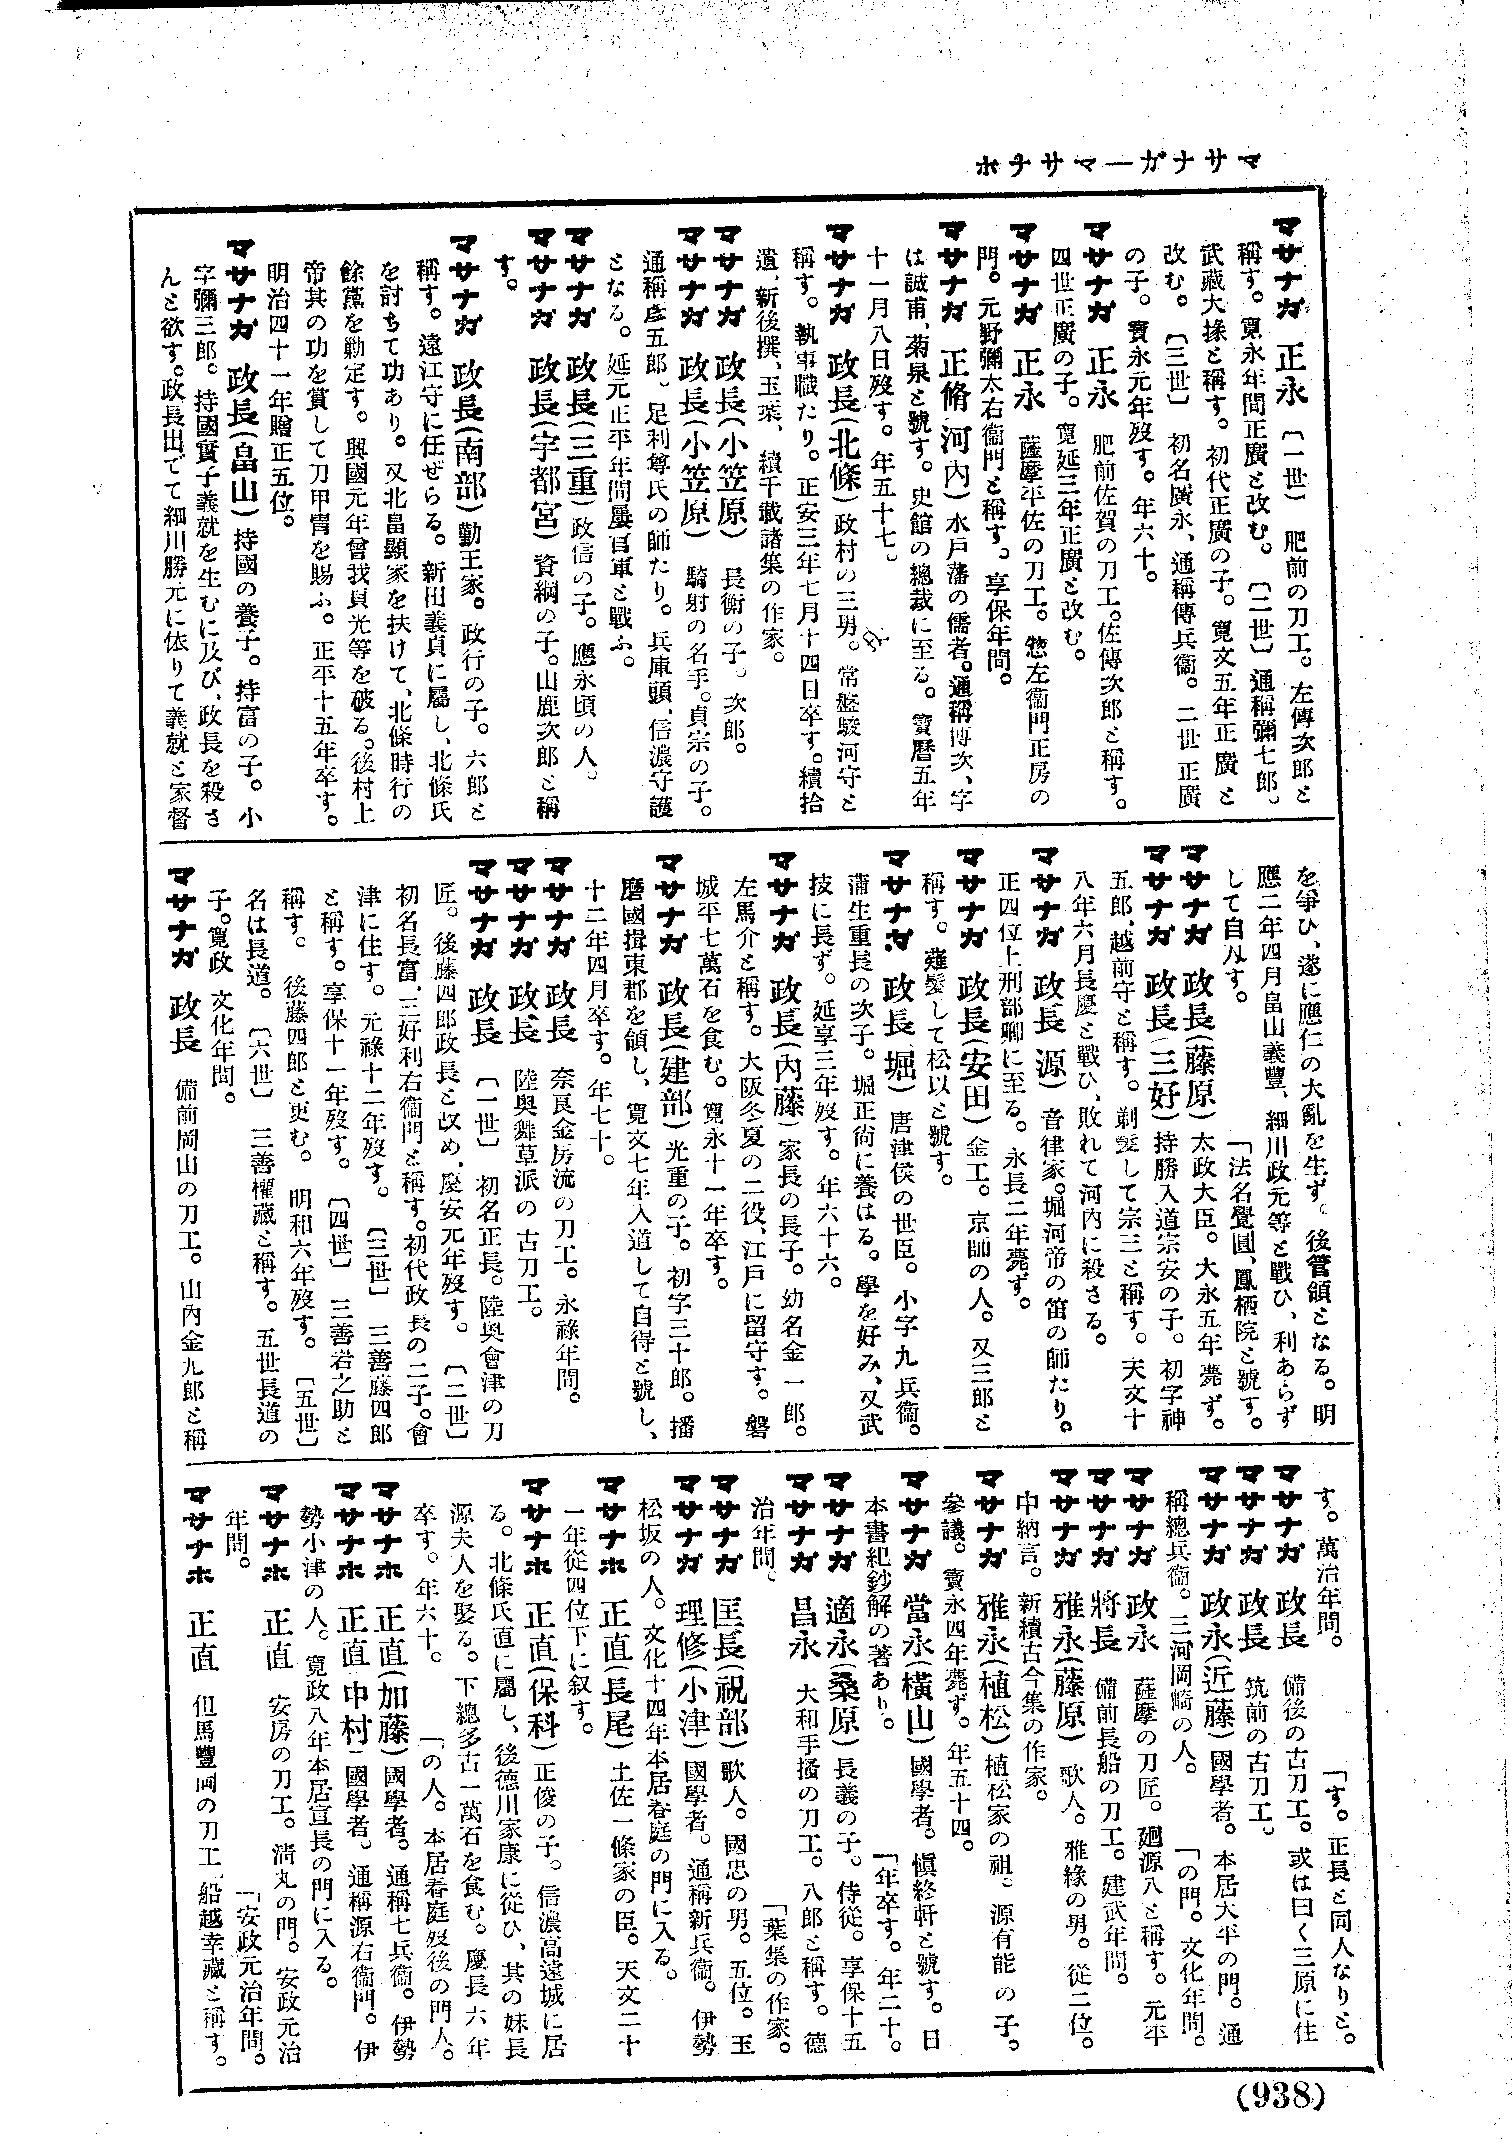 マサナガ―マサナホ
マサナガ 正永 〔一世〕 肥前の刀工。左傳次郎と
稱す。寬永年間正廣と改む。〔二世〕通稱彌七郎。
武藏大掾と稱す。初代正廣の子。寬文五年正廣と
改む。〔三世〕 初名廣永、通稱傳兵衞。二世正廣
の子。寶永元年歿す。年六十。
マサナガ 正永 肥前佐賀の刀工。佐傳次郎と稱す。
四世正廣の子。寬延三年正廣と改む。
マサナガ 正永 薩摩平佐の刀工。惣左衞門正房の
門。元野彌太右衞門と稱す。享保年間。
マサナガ 正脩(河內) 水戶藩の儒者。通稱博次、字
は誠甫、菊泉と號す。史館の總裁に至る。寶曆五年
十一月八日歿す。年五十七。
マサナガ 政長(北條) 政村の三男。常盤駿河守と
稱す。執事職たり。正安三年七月十四日卒す。續拾
遺、新後撰、玉葉、續千載諸集の作家。
マサナガ 政長(小笠原) 長衡の子。次郎。
マサナガ 政長(小笠原) 騎射の名手。貞宗の子。
通稱彥五郎。足利尊氏の師たり。兵庫頭、信濃守護
となる。延元正平年間屢官軍と戰ふ。
マサナガ 政長(三重) 政信の子。應永頃の人。
マサナガ 政長(宇都宮) 資綱の子。山鹿次郎と稱
す。
マサナガ 政長(南部) 勤王家。政行の子。六郎と
稱す。遠江守に任ぜらる。新田義貞に屬し、北條氏
を討ちて功あり。又北畠顯家を扶けて、北條時行の
餘黨を勦定す。興國元年曾我貞光等を破る。後村上
帝其の功を賞して刀甲冑を賜ふ。正平十五年卒す。
明治四十一年贈正五位。
マサナガ 政長(畠山) 持國の養子。持富の子。小
字彌三郎。持國實子義就を生むに及び、政長を殺さ
んと欲す。政長出でて細川勝元に依りて義就と家督
を爭ひ、遂に應仁の大亂を生ず。後管領となる。明
應二年四月畠山義豐、細川政元等と戰ひ、利あらず
して自刄す。 「法名覺圓、鳳栖院と號す。
マサナガ 政長(藤原) 太政大臣。大永五年薨ず。
マサナガ 政長(三好) 持勝入道宗安の子。初字神
五郎、越前守と稱す。剃髮して宗三と稱す。天文十
八年六月長慶と戰ひ、敗れて河內に殺さる。
マサナガ 政長(源) 音律家。堀河帝の笛の師たり。
正四位上刑部卿に至る。永長二年薨ず。
マサナガ 政長(安田) 金工。京師の人。又三郎と
稱す。薙髮して松以と號す。
マサナガ 政長(堀) 唐津侯の世臣。小字九兵衞。
蒲生重長の次子。堀正尙に養はる。學を好み、又武
技に長ず。延享三年歿す。年六十六。
マサナガ 政長(內藤) 家長の長子。幼名金一郎。
左馬介と稱す。大阪冬夏の二役、江戶に留守す。磐
城平七萬石を食む。寬永十一年卒す。
マサナガ 政長(建部) 光重の子。初字三十郎。播
磨國揖東郡を領し、寬文七年入道して自得と號し、
十二年四月卒す。年七十。
マサナガ 政長 奈良金房流の刀工。永祿年間。
マサナガ 政長 陸奧舞草派の古刀工。
マサナガ 政長 〔一世〕 初名正長。陸奧會津の刀
匠。後藤四郎政長と改め、慶安元年歿す。〔二世〕
初名長富、三好利右衞門と稱す。初代政長の二子。會
津に住す。元祿十二年歿す。〔三世〕 三善藤四郎
と稱す。享保十一年歿す。〔四世〕 三善岩之助と
稱す。 後藤四郎と更む。 明和六年歿す。〔五世〕
名は長道。〔六世〕 三善權藏と稱す。五世長道の
子。寬政文化年間。
マサナガ 政長 備前岡山の刀工。山內金九郎と稱
す。萬治年間。 「す。正長と同人なりと。
マサナガ 政長 備後の古刀工。或は曰く三原に住
マサナガ 政長 筑前の古刀工。
マサナガ 政永(近藤) 國學者。本居大平の門。通
稱總兵衞。三河岡崎の人。 「の門。文化年間。
マサナガ 政永 薩摩の刀匠。廻源八と稱す。元平
マサナガ 將長 備前長船の刀工。建武年間。
マサナガ 雅永(藤原) 歌人。雅緣の男。從二位。
中納言。新續古今集の作家。
マサナガ 雅永(植松) 植松家の祖。源有能の子。
參議。寶永四年薨ず。年五十四。
マサナガ 當永(橫山) 國學者。愼終軒と號す。日
本書紀鈔解の著あり。 「年卒す。年二十。
マサナガ 適永(桑原) 長義の子。侍從。享保十五
マサナガ 昌永 大和手搔の刀工。八郎と稱す。德
治年間。 「葉集の作家。
マサナガ 匡長(祝部) 歌人。國忠の男。五位。玉
マサナガ 理修(小津) 國學者。通稱新兵衞。伊勢
松坂の人。文化十四年本居春庭の門に入る。
マサナホ 正直(長尾) 土佐一條家の臣。天文二十
一年從四位下に叙す。
マサナホ 正直(保科) 正俊の子。信濃高遠城に居
る。北條氏直に屬し、後德川家康に從ひ、其の妹長
源夫人を娶る。下總多古一萬石を食む。慶長六年
卒す。年六十。 「の人。本居春庭歿後の門人。
マサナホ 正直(加藤) 國學者。通稱七兵衞。伊勢
マサナホ 正直(中村) 國學者。通稱源右衞門。伊
勢小津の人。寬政八年本居宣長の門に入る。
マサナホ 正直 安房の刀工。淸丸の門。安政元治
年間。 「安政元治年間。
マサナホ 正直 但馬豐岡の刀工、船越幸藏と稱す。
(938)